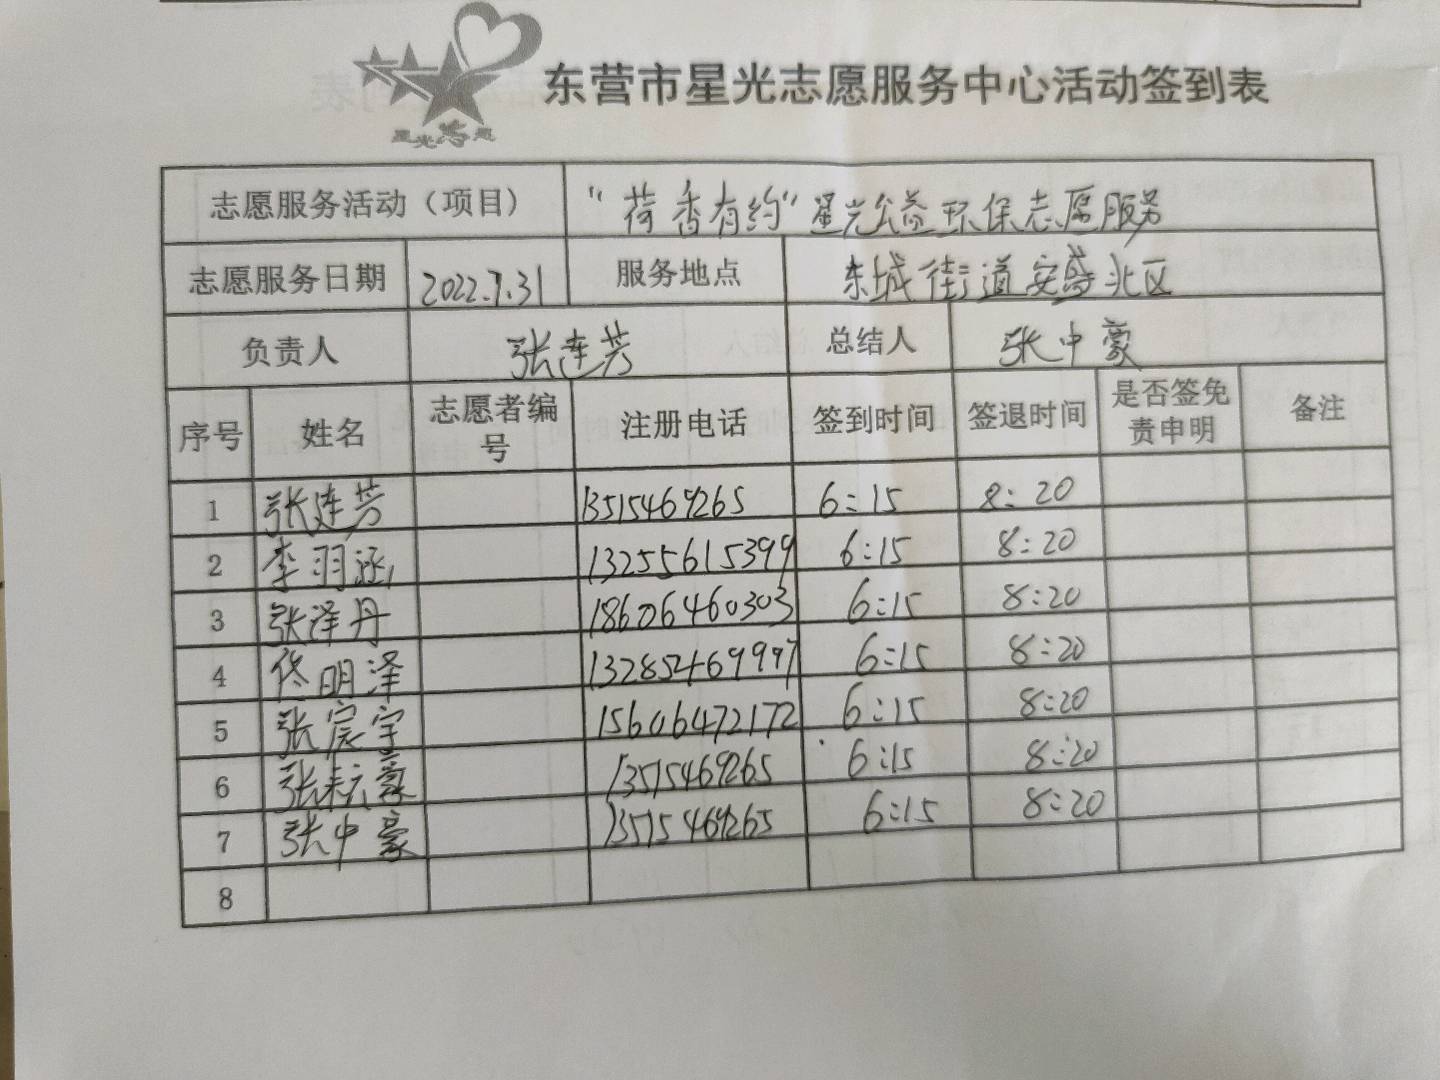 星光志愿
东营市星光志愿服务中心活动签到表
志愿服务活动（项目） “荷香有约”星光公益环保志愿服务
志愿服务日期 2022.7.31 服务地点 东城街道安盛北区
负责人 张连芳 总结人 张中豪
序号 姓名 志愿者编号 注册电话 签到时间 签退时间 是否签免责申明 备注
1 张连芳 13515469265 6:15 8:20
2 李羽涵 13255615399 6:15 8:20
3 张泽丹 18606460303 6:15 8:20
4 佟明泽 13285469997 6:15 8:20
5 张宸宇 15606472172 6:15 8:20
6 张耘豪 13515469265 6:15 8:20
7 张中豪 13515469265 6:15 8:20
8